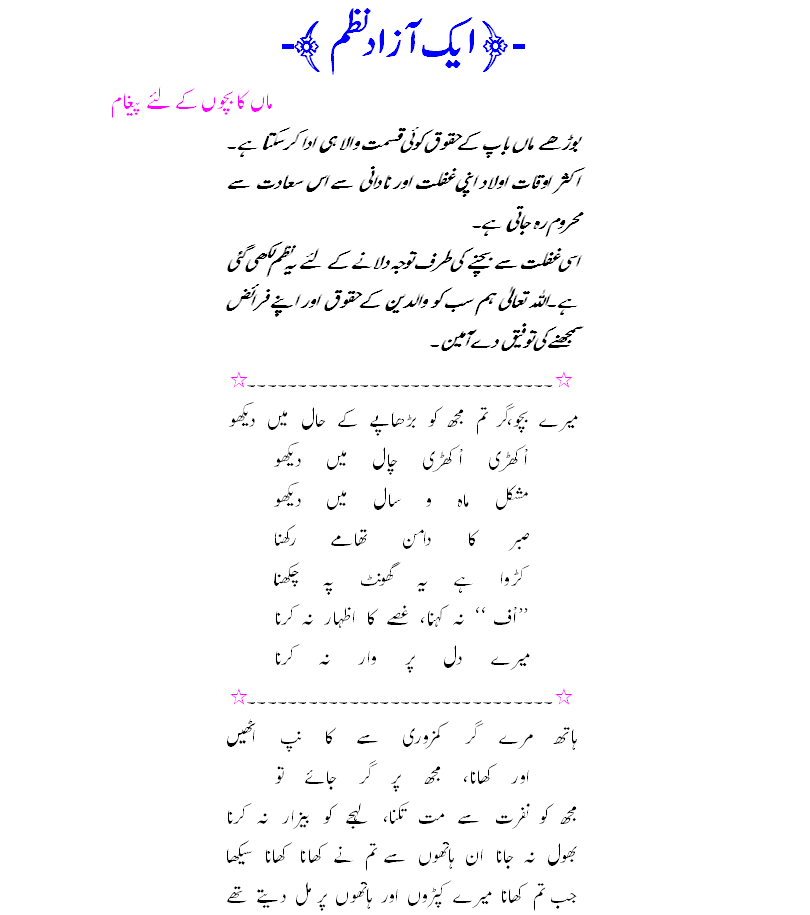 -﴿ ایک آزاد نظم ﴾-
ماں کا بچوں کے لئے پیغام
بوڑھے ماں باپ کے حقوق کوئی قسمت والا ہی ادا کر سکتا ہے۔
اکثر اوقات اولاد اپنی غفلت اور نادانی سے اس سعادت سے
محروم رہ جاتی ہے۔
اسی غفلت سے بچنے کی طرف توجہ دلانے کے لئے یہ نظم لکھی گئی
ہے۔اللہ تعالیٰ ہم سب کو والدین کے حقوق اور اپنے فرائض
سمجھنے کی توفیق دے آمین۔
☆۔۔۔۔۔۔۔۔۔۔۔۔۔۔۔۔۔۔۔۔۔۔۔۔۔۔۔۔۔۔☆
میرے بچو،گر تم مجھ کو بڑھاپے کے حال میں دیکھو
اُکھڑی اُکھڑی چال میں دیکھو
مشکل ماہ و سال میں دیکھو
صبر کا دامن تھامے رکھنا
کڑوا ہے یہ گھونٹ پہ چکھنا
’’اُف ‘‘ نہ کہنا، غصے کا اظہار نہ کرنا
میرے دل پر وار نہ کرنا
☆۔۔۔۔۔۔۔۔۔۔۔۔۔۔۔۔۔۔۔۔۔۔۔۔۔۔۔۔۔۔☆
ہاتھ مرے گر کمزوری سے کا نپ اٹھیں
اور کھانا، مجھ پر گر جائے تو
مجھ کو نفرت سے مت تکنا، لہجے کو بیزار نہ کرنا
بھول نہ جانا ان ہاتھوں سے تم نے کھانا کھانا سیکھا
جب تم کھانا میرے کپڑوں اور ہاتھوں پر مل دیتے تھے